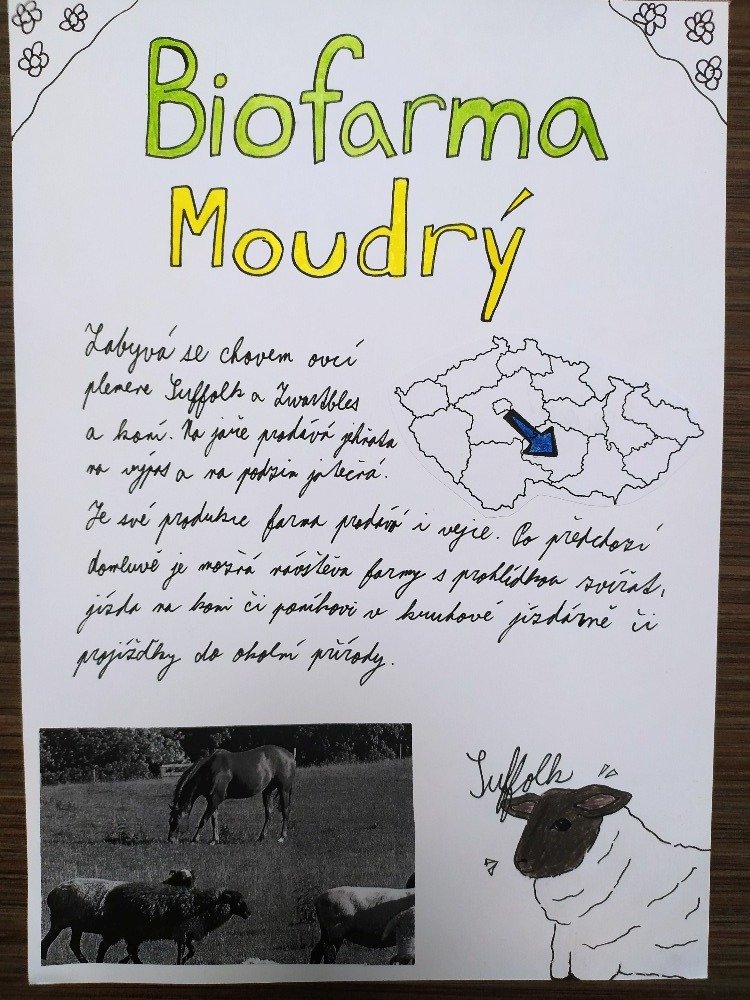 Biofarma
Moudrý
Zabývá se chovem ovcí
plemene Suffolk a Zwartbles
a koní. Na jaře prodává jehňata
na výpas a na podzim jatečná.
Ze své produkce farma prodává i vejce. Po předchozí
domluvě je možná návštěva farmy s prohlídkou zvířat,
jízda na koni či poníkovi v kruhové jízdárně či
projížďky do okolní přírody.
Suffolk